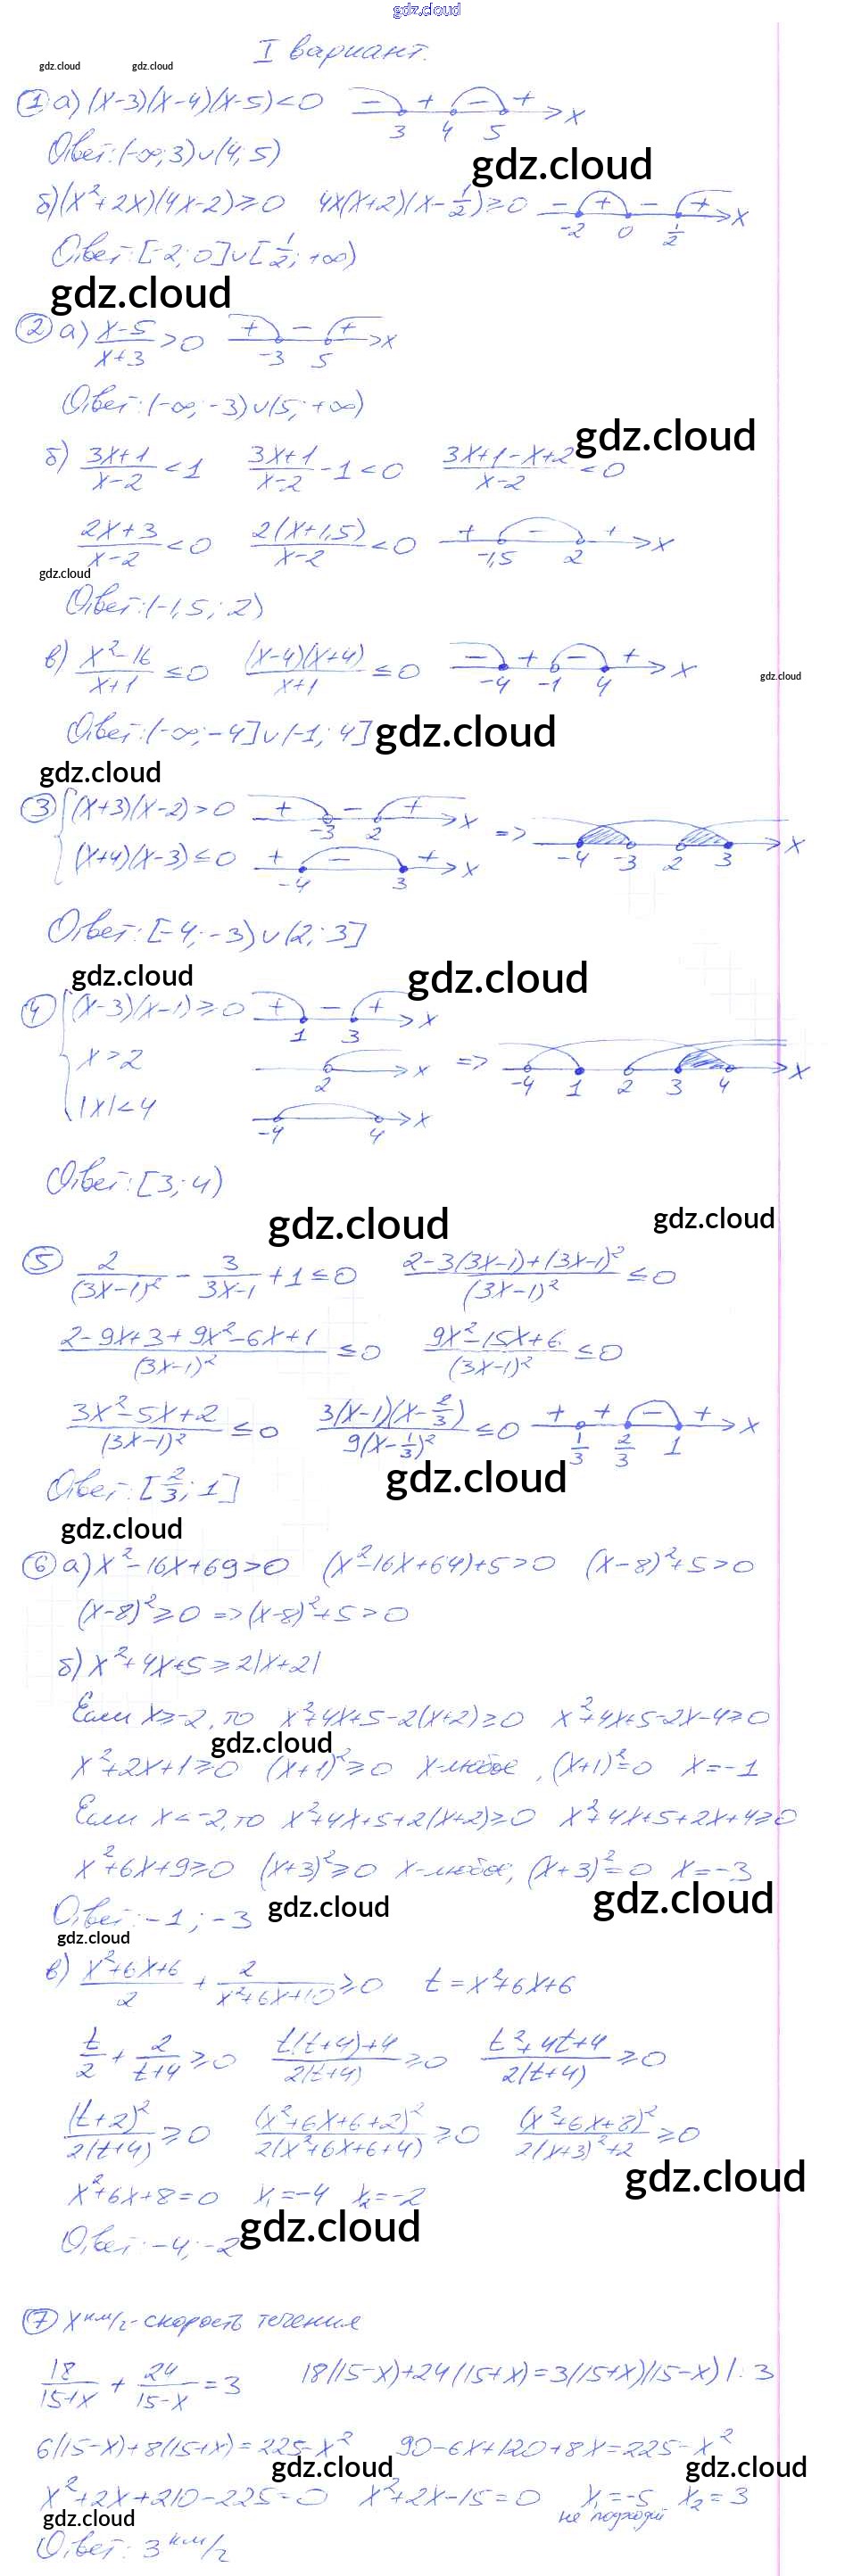 gdz.cloud
I вариант.
gdz.cloud gdz.cloud
① а) (x-3)(x-4)(x-5)<0 − + − + 3 4 5 x
Ответ: (-∞; 3)∪(4; 5)
gdz.cloud
б) (x²+2x)(4x-2)≥0 4x(x+2)(x-1/2)≥0 − + − + -2 0 1/2 x
Ответ: [-2; 0]∪[1/2; +∞)
gdz.cloud
② а) (x-5)/(x+3) >0 + − + -3 5 x
Ответ: (-∞; -3)∪(5; +∞)
gdz.cloud
б) (3x+1)/(x-2) <1 (3x+1)/(x-2) -1<0 (3x+1-x+2)/(x-2) <0
(2x+3)/(x-2) <0 2(x+1,5)/(x-2) <0 + − + -1,5 2 x
gdz.cloud
Ответ: (-1,5; 2)
в) (x²-16)/(x+1) ≤0 (x-4)(x+4)/(x+1) ≤0 − + − + -4 -1 4 x
gdz.cloud
Ответ: (-∞; -4]∪(-1; 4]
gdz.cloud
gdz.cloud
③ { (x+3)(x-2)>0 + − + -3 2 x
(x+4)(x-3)≤0 + − + -4 3 x => -4 -3 2 3 x
Ответ: [-4; -3)∪(2; 3]
gdz.cloud gdz.cloud
④ { (x-3)(x-1)≥0 + − + 1 3 x
x>2 2 x => -4 1 2 3 4 x
|x|<4 -4 4 x
Ответ: [3; 4)
gdz.cloud gdz.cloud
⑤ 2/(3x-1)² - 3/(3x-1) +1≤0 (2-3(3x-1)+(3x-1)²)/(3x-1)² ≤0
(2-9x+3+9x²-6x+1)/(3x-1)² ≤0 (9x²-15x+6)/(3x-1)² ≤0
(3x²-5x+2)/(3x-1)² ≤0 3(x-1)(x-2/3)/9(x-1/3)² ≤0 + + − + 1/3 2/3 1 x
Ответ: [2/3; 1]
gdz.cloud
gdz.cloud
⑥ а) x²-16x+69>0 (x²-16x+64)+5>0 (x-8)²+5>0
(x-8)²≥0 => (x-8)²+5>0
б) x²+4x+5≥2|x+2|
Если x≥-2, то x²+4x+5-2(x+2)≥0 x²+4x+5-2x-4≥0
gdz.cloud
x²+2x+1≥0 (x+1)²≥0 x-любое, (x+1)²=0 x=-1
Если x<-2, то x²+4x+5+2(x+2)≥0 x²+4x+5+2x+4≥0
x²+6x+9≥0 (x+3)²≥0 x-любое, (x+3)²=0 x=-3
gdz.cloud gdz.cloud
Ответ: -1; -3
gdz.cloud
в) (x²+6x+6)/2 + 2/(x²+6x+10) ≥0 t=x²+6x+6
t/2 + 2/(t+4) ≥0 (t(t+4)+4)/2(t+4) ≥0 (t²+4t+4)/2(t+4) ≥0
(t+2)²/2(t+4) ≥0 (x²+6x+6+2)²/2(x²+6x+6+4) ≥0 (x²+6x+8)²/2(x+3)²+2 ≥0
gdz.cloud
x²+6x+8=0 x₁=-4 x₂=-2
gdz.cloud
Ответ: -4; -2
⑦ x км/г - скорость течения
18/(15+x) + 24/(15-x) =3 18(15-x)+24(15+x)=3(15+x)(15-x) |:3
6(15-x)+8(15+x)=225-x² 90-6x+120+8x=225-x²
gdz.cloud gdz.cloud
x²+2x+210-225=0 x²+2x-15=0 x₁=-5 x₂=3
не подходит
gdz.cloud
Ответ: 3 км/г